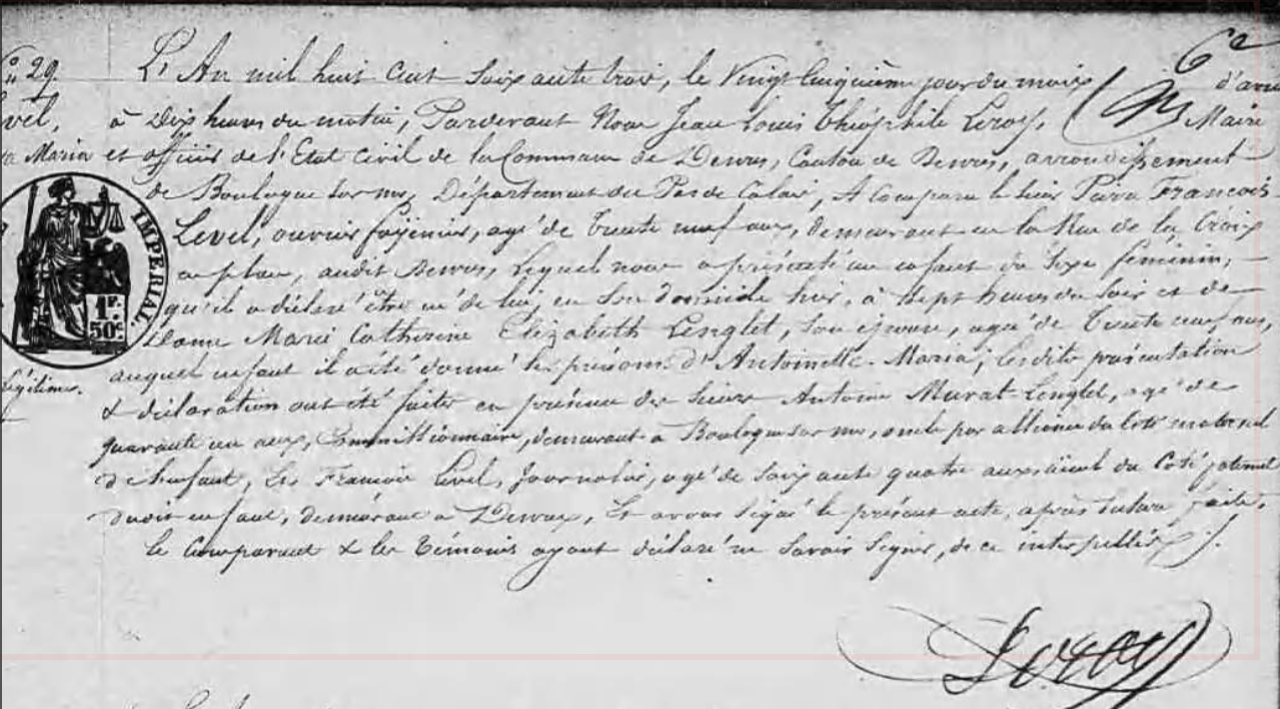 6e
No 29.
L'An mil huit cent soixante trois, le Vingt Cinquième jour du mois d'avril
vel,
à dix heures du matin, Pardevant Nous Jean Louis Théophile Leroy, Maire
Maria et officier de l'Etat civil de la Commune de Desvres, Canton de Desvres, arrondissement
de Boulogne sur mer, Département du Pas de Calais, A comparu le sieur Pierre François
Level, ouvrier fayencier, agé de trente neuf ans, demeurant en la Rue de la Croix
audit Desvres, lequel nous a présenté un enfant du sexe féminin,
qu'il a déclaré être né de lui, en son domicile hier, à sept heures du soir et de
dame Marie Catherine Elizabeth Lenglet, son épouse, agée de trente ans,
auquel enfant il a été donné les prénoms d'Antoinette Maria; lesdites présentation
& déclaration ont été faites en présence des sieurs Antoine Murat-Lenglet, agé de
quarante un ans, Commissionnaire, demeurant à Boulogne sur mer, oncle par alliance du coté maternel
de l'enfant, Et François Level, Journalier, agé de soixante quatre ans, aïeul du Coté paternel
dudit enfant, demeurant à Desvres, Et avons signé le présent acte, après lecture faite,
le Comparant & les témoins ayant déclaré ne savoir signer, de ce interpellés.
IMPERIAL.
1F.
50c.
légitime.
Leroy